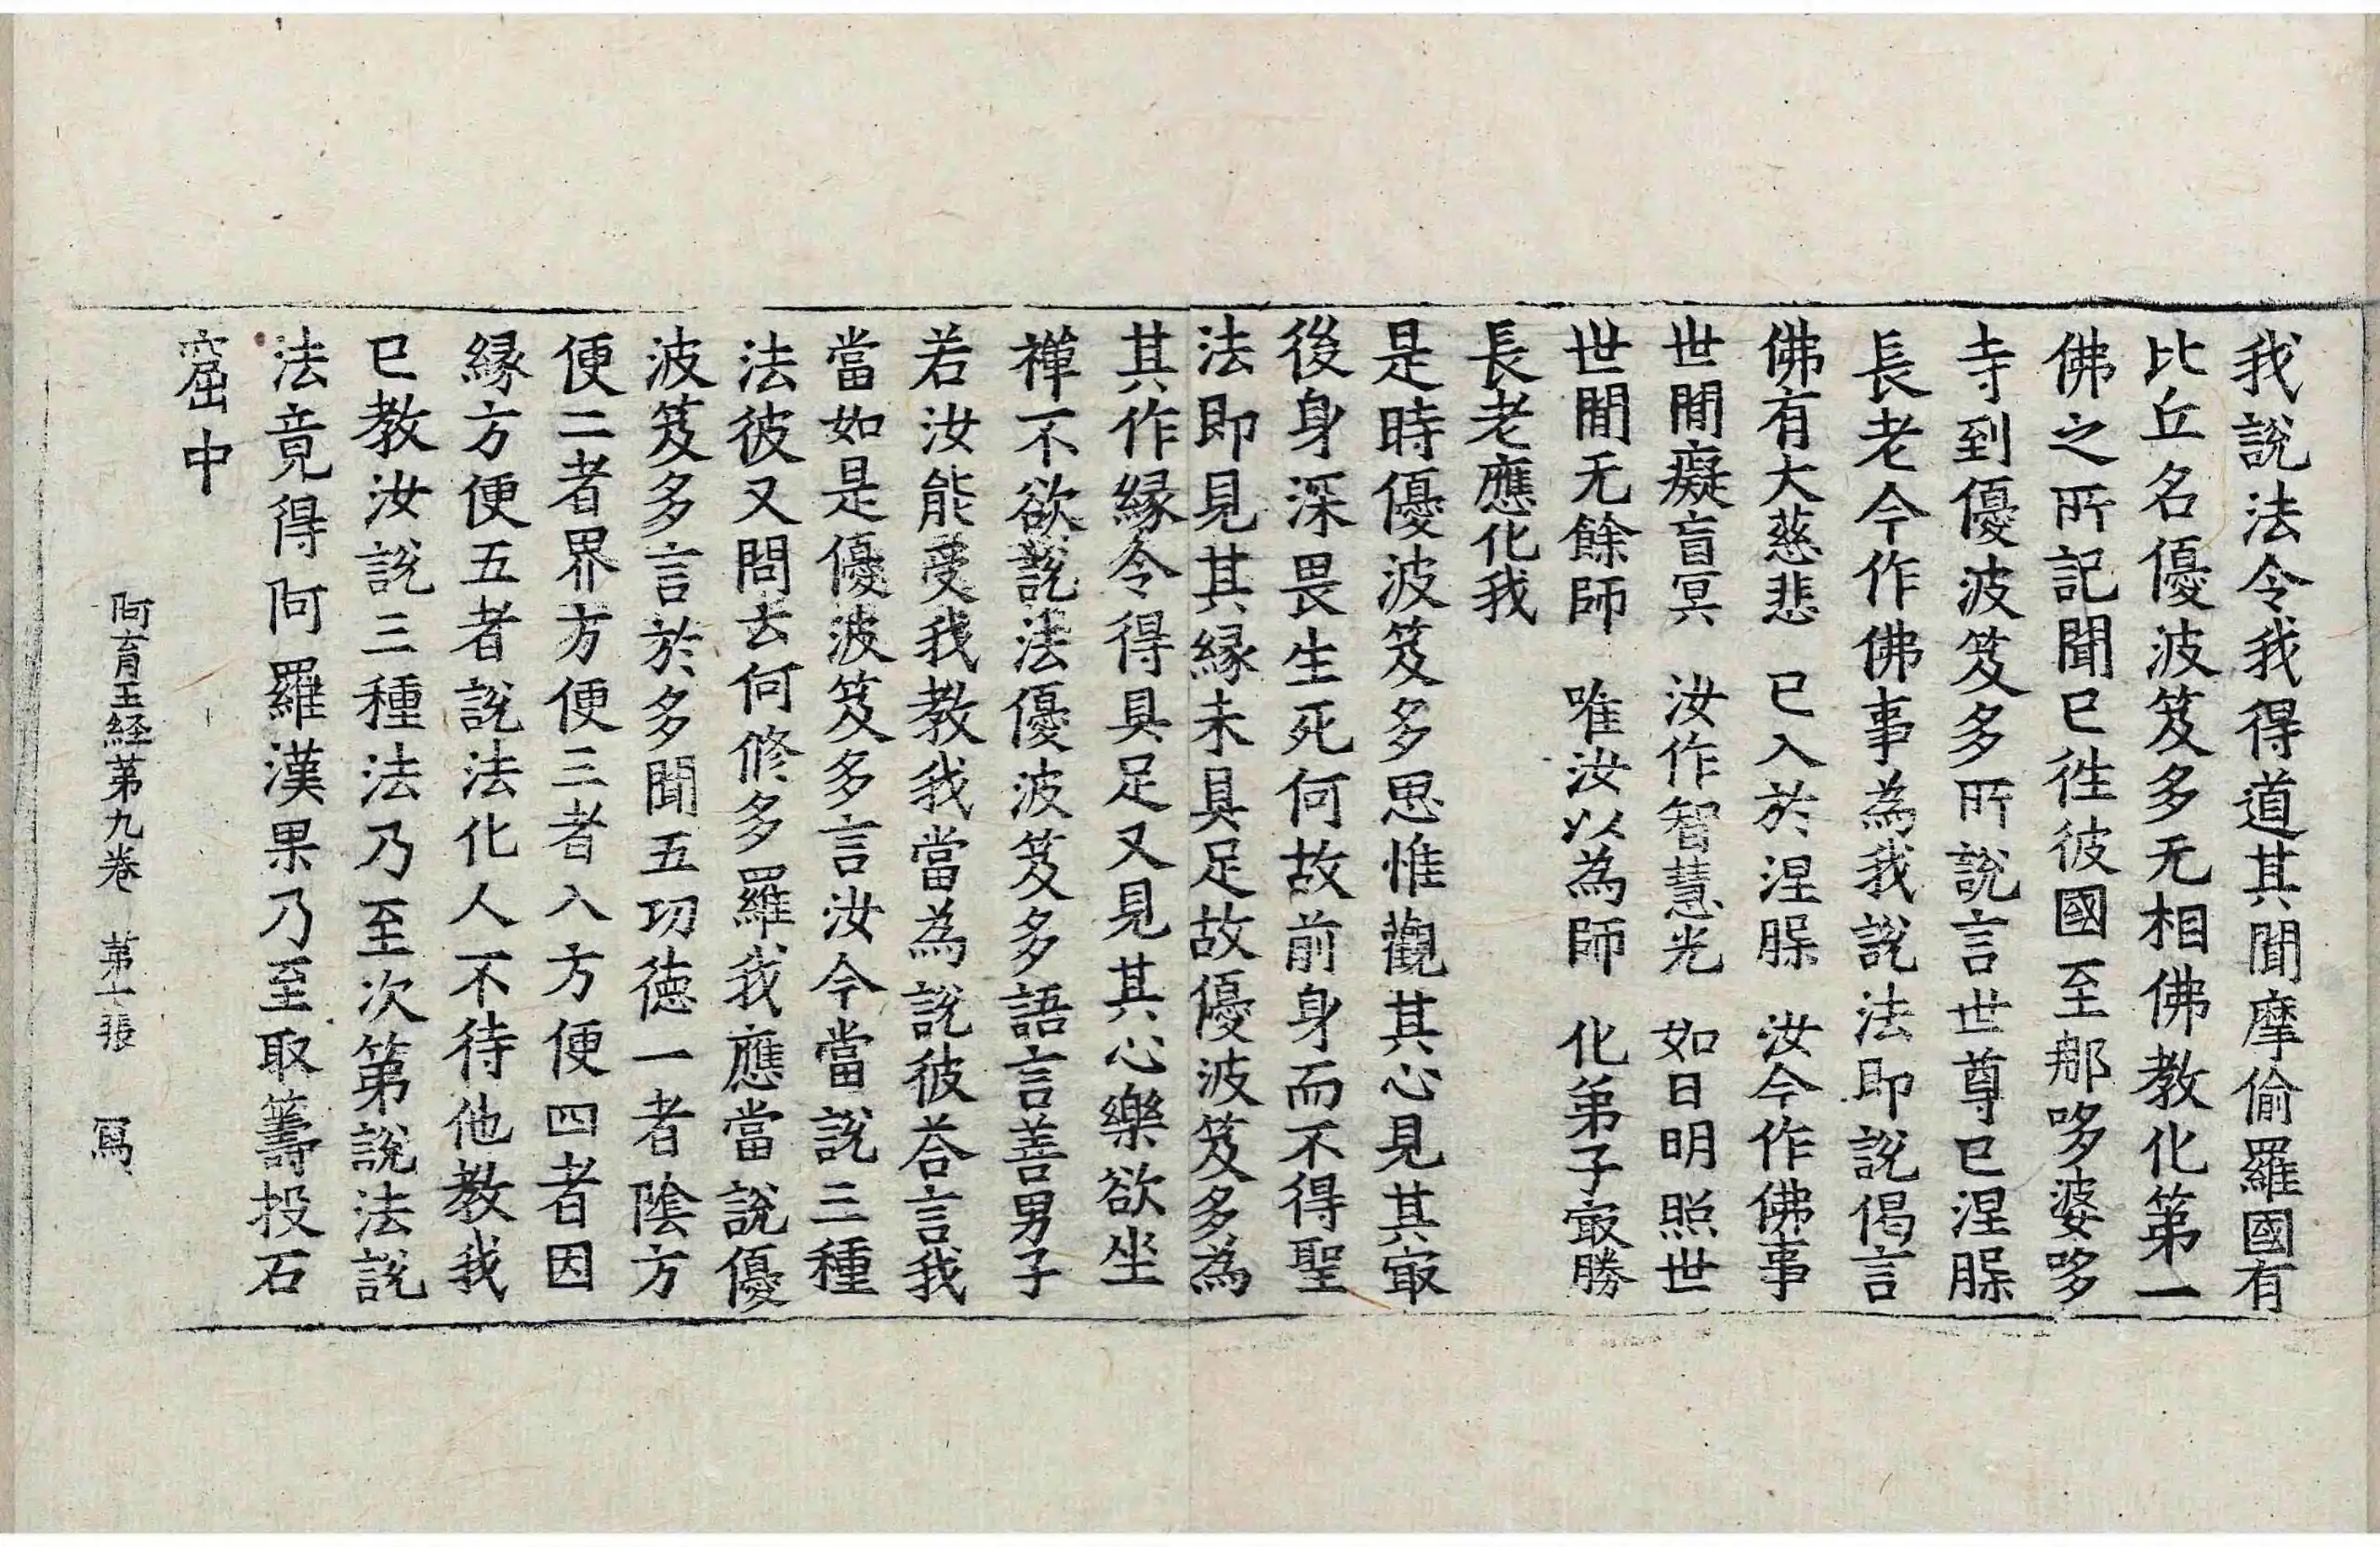 我說法令我得道其聞摩偷羅國有
比丘名優波笈多无相佛教化第一
佛之所記聞已徃彼國至那哆婆哆
寺到優波笈多所說言世尊已涅槃
長老今作佛事為我說法即說偈言
佛有大慈悲　已入於涅槃　汝今作佛事
世閒癡盲冥　汝作智慧光　如日明照世
世閒无餘師　唯汝以為師　化弟子㝡勝
長老應化我
是時優波笈多思惟觀其心見其㝡
後身深畏生死何故前身而不得聖
法即見其縁未具足故優波笈多為
其作縁令得具足又見其心樂欲坐
禪不欲說法優波笈多語言善男子
若汝能受我教我當為說彼荅言我
當如是優波笈多言汝今當說三種
法彼又問去何修多羅我應當說優
波笈多言於多聞五功徳一者陰方
便二者界方便三者入方便四者因
縁方便五者說法化人不待他教我
已教汝說三種法乃至次第說法說
法竟得阿羅漢果乃至取籌投石
窟中
阿育王経第九卷　第二張　寫